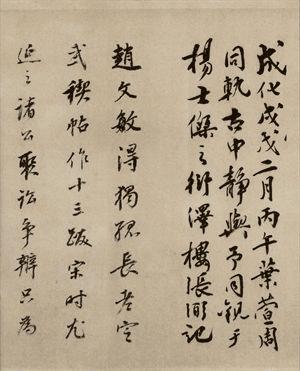 成化戊戌二月丙午葉萱周
同軌古中靜與予同觀于
楊士傑之衍澤樓張淵記
趙文敏得獨孤長老定
武稧帖作十三跋宋時尤
延之諸公聚訟爭辯只為